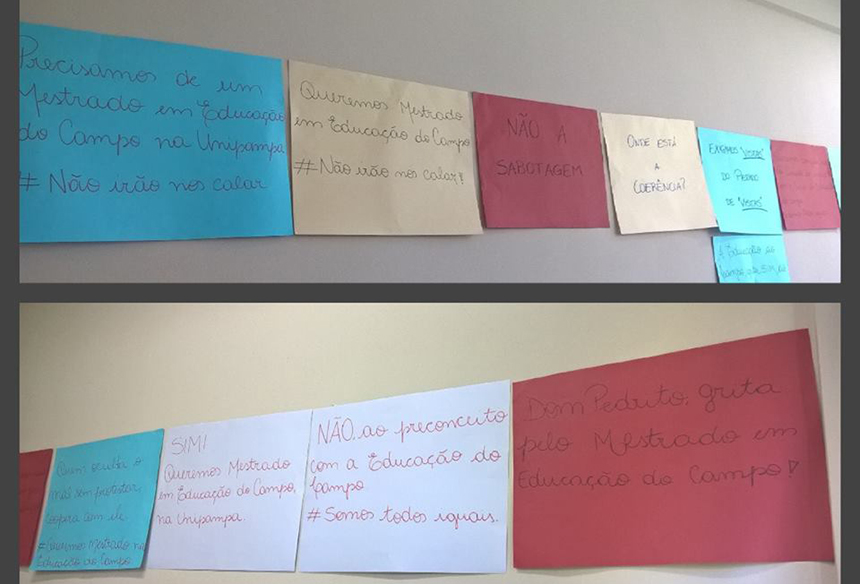 Precisamos de um
Mestrado em Educação
do Campo na Unipampa
# Não irão nos calar
Queremos Mestrado
em Educação do Campo
#Não irão nos calar!
NÃO A
SABOTAGEM
ONDE ESTÁ
A
COERÊNCIA?
EXIGIMOS "VISTAS"
DO PEDIDO
DE "VISTAS"
A Educação do
Campo
Quem
mas sem protestar,
coopera com ele.
#Queremos Mestrado na
Educação do Campo
SIM!
Queremos Mestrado
em Educação do Campo,
na Unipampa.
NÃO ao preconceito
com a Educação do
Campo
# Somos todos iguais.
Dom Pedrito, grita
pelo Mestrado em
Educação do Campo!